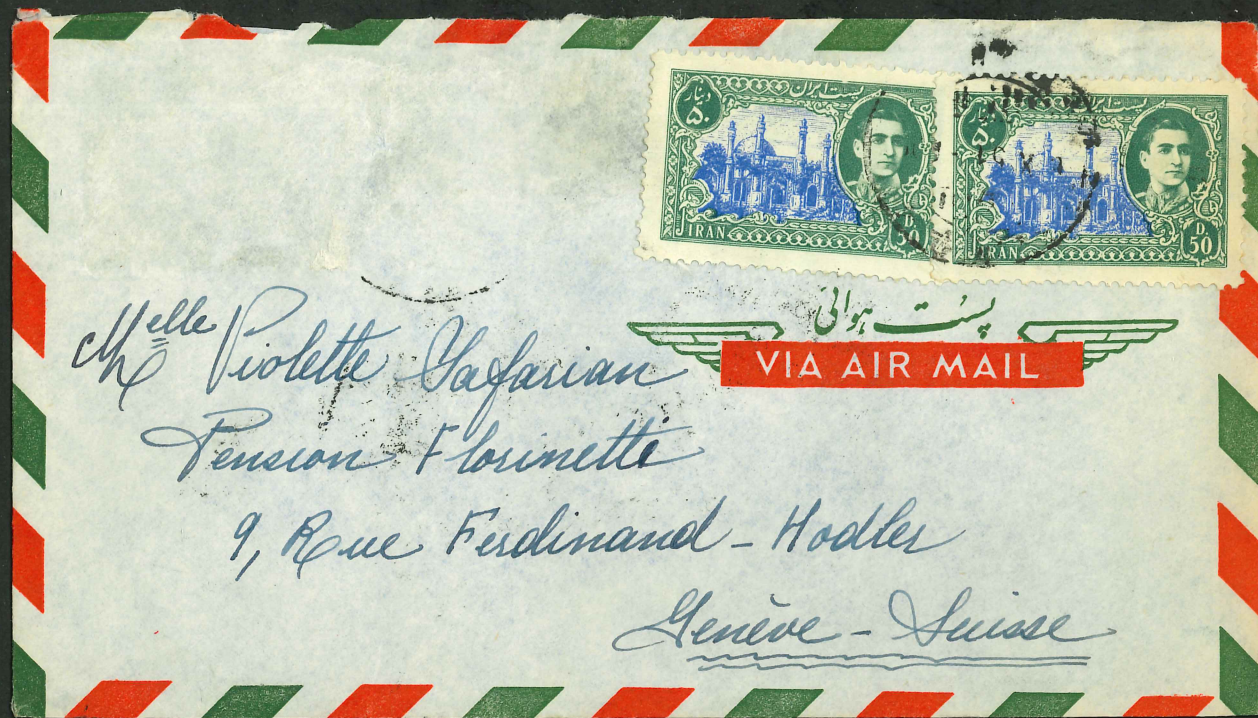 دینار ۵۰
پست ایران
IRAN
دینار ۵۰
پست ایران
IRAN
D. 50
پست هوائی
VIA AIR MAIL
Melle Violette Safarian
Pension Florinette
9, Rue Ferdinand - Hodler
Genève - Suisse